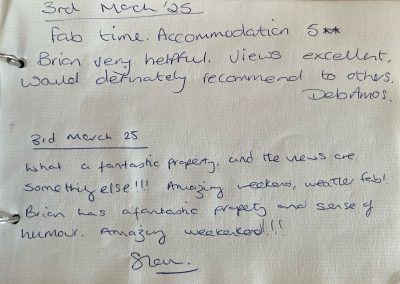 3rd March '25
Fab time. Accommodation 5**
Brian very helpful. Views excellent.
Would definately recommend to others.
Deb Amos.
3rd March 25
What a fantastic property, and the views are
something else!!! Amazing weekend, weather fab!
Brian has a fantastic propety and sense of
humour. Amazing weekekend!!!